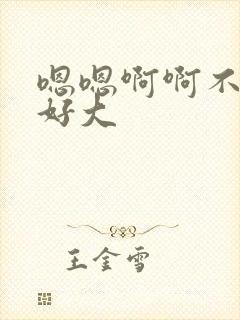 嗯嗯啊啊不
好大
王金雪